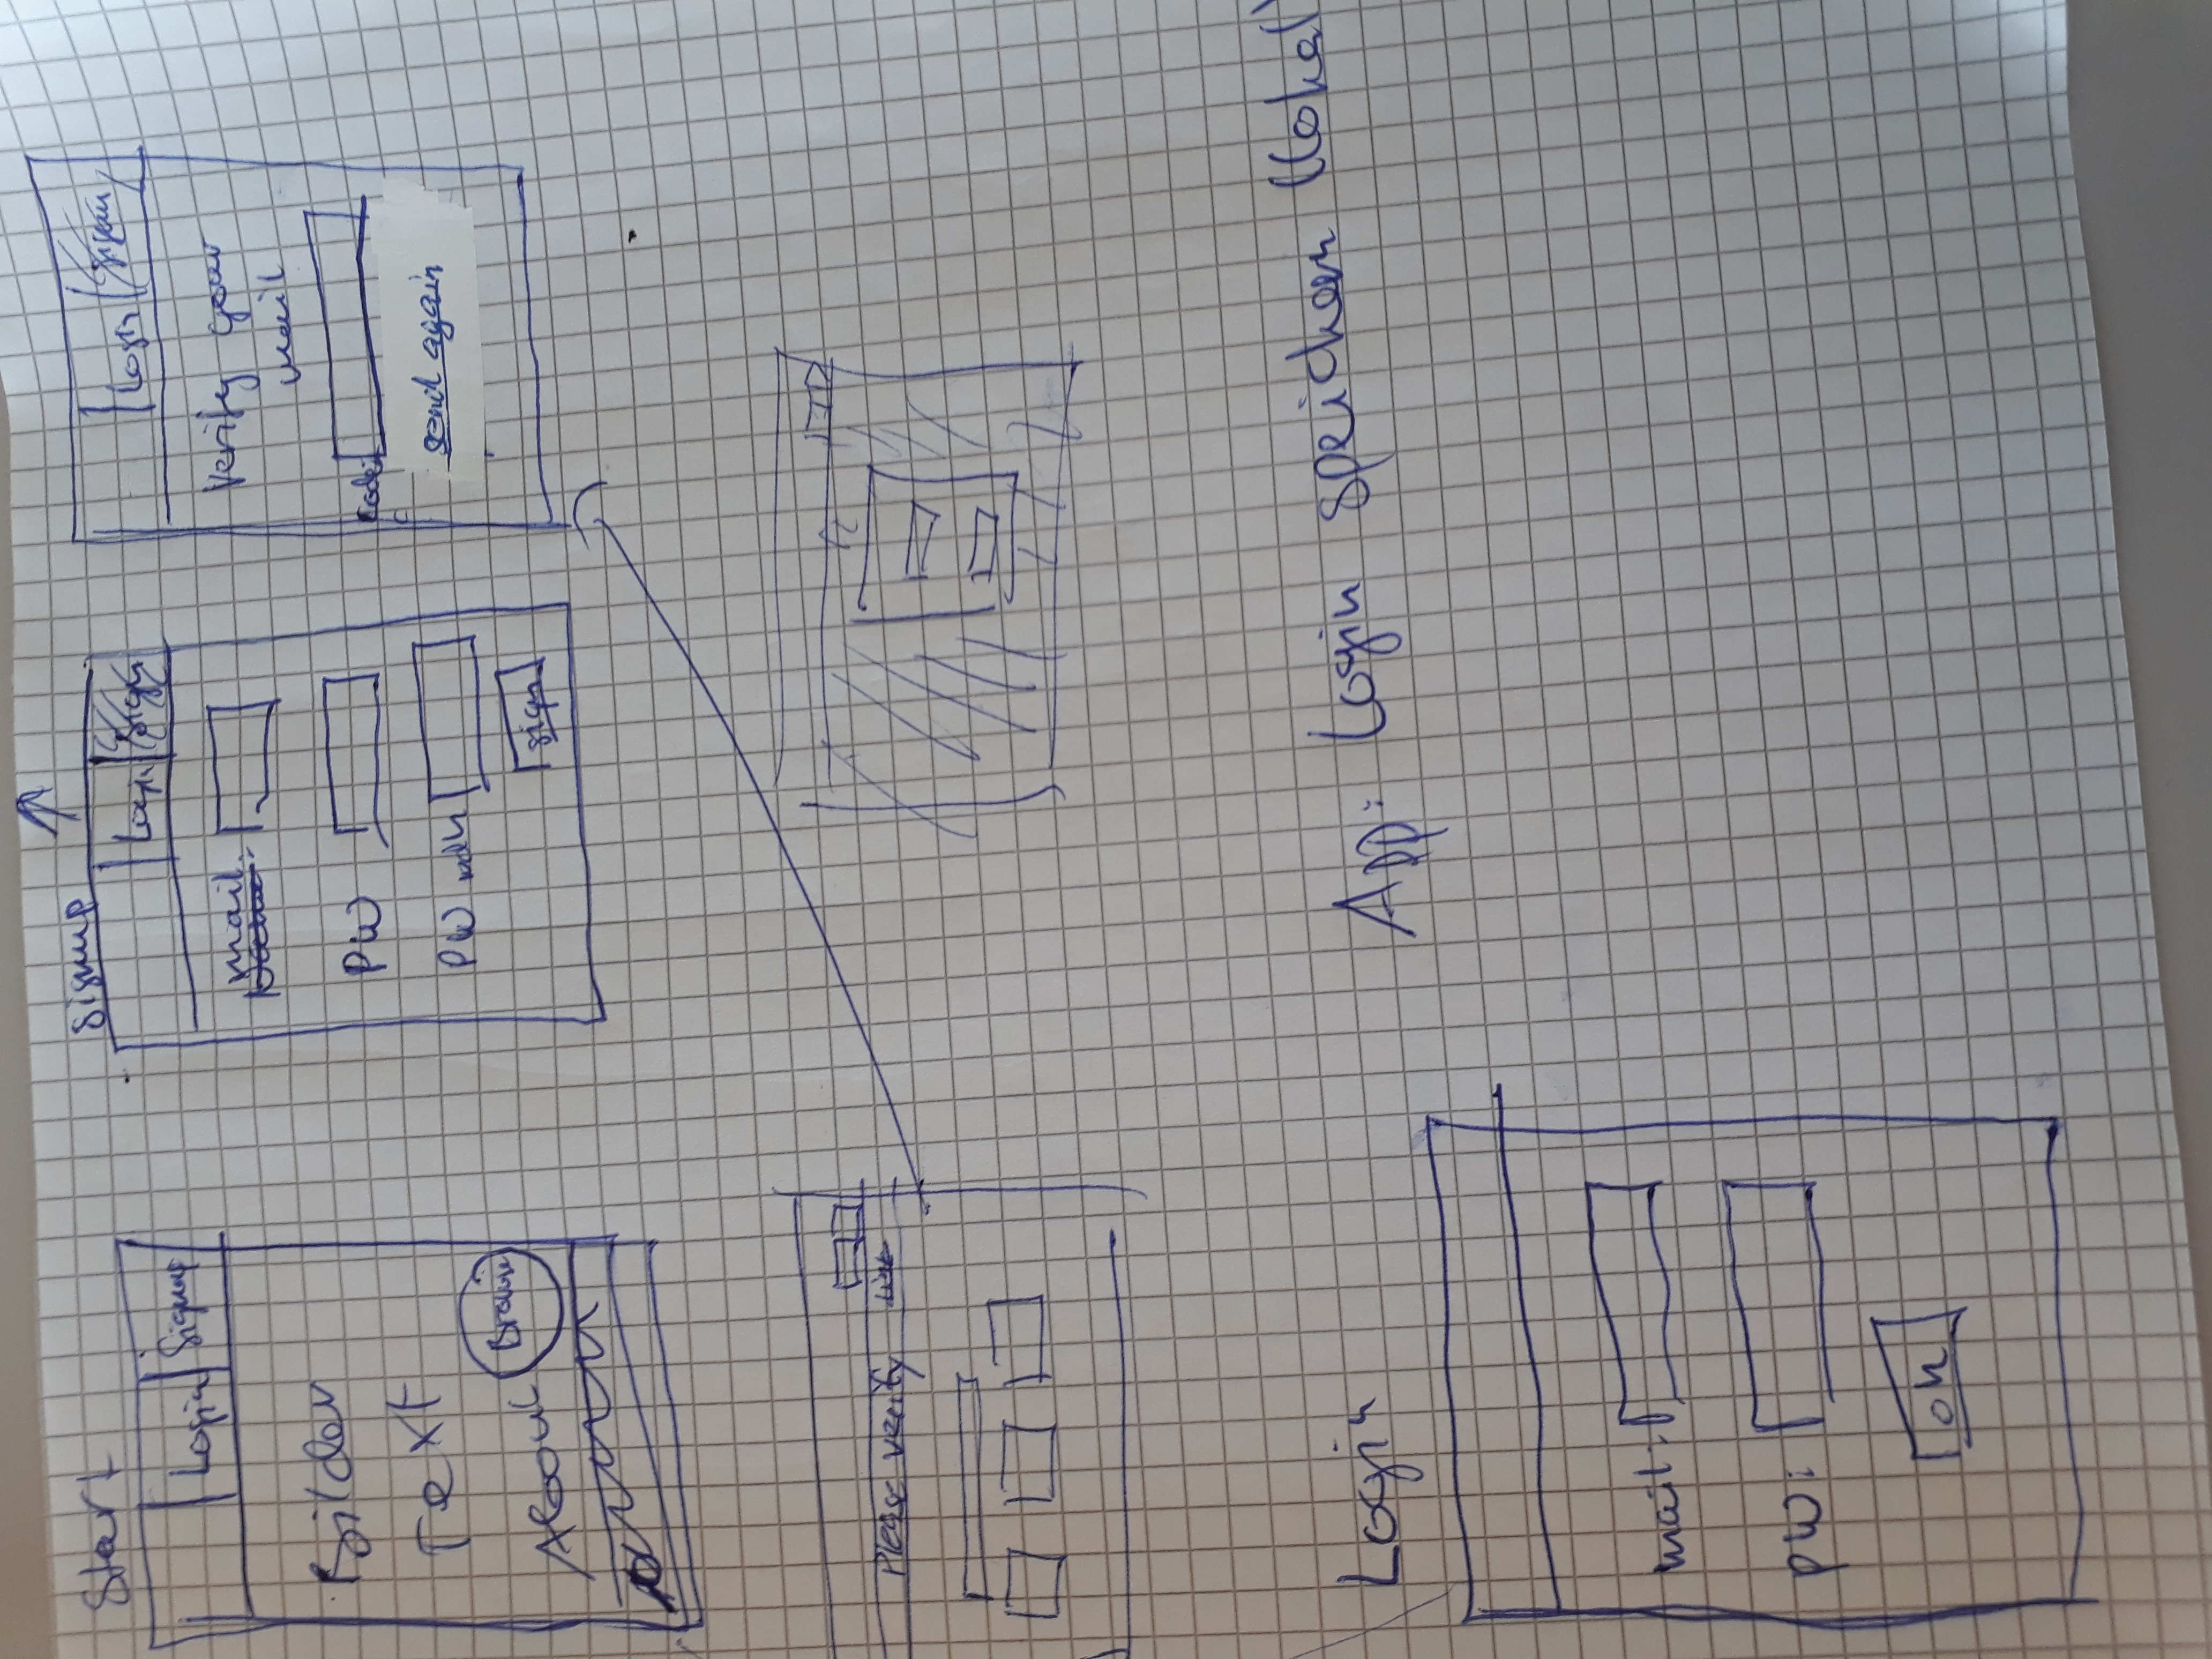 Start
Login Signup
Bilder
Text
About
Signup
Login Sign
mail
PW
PW wdh
sign
Login
Verify your
mail
Code:
send again
Please verify
Login
mail:
PW:
OK
App: Login speichern (lokal)